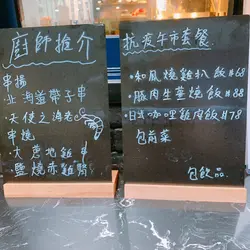 廚師推介
串揚
北海道帶子串
・天使之海老
串燒
・大葱地雞串
鹽燒赤雞
抗疫午市套餐
・和風燒雞扒飯 $68
・豚肉生薑燒飯 $88
・日式咖哩雞肉飯 $78
包前菜
包飲品